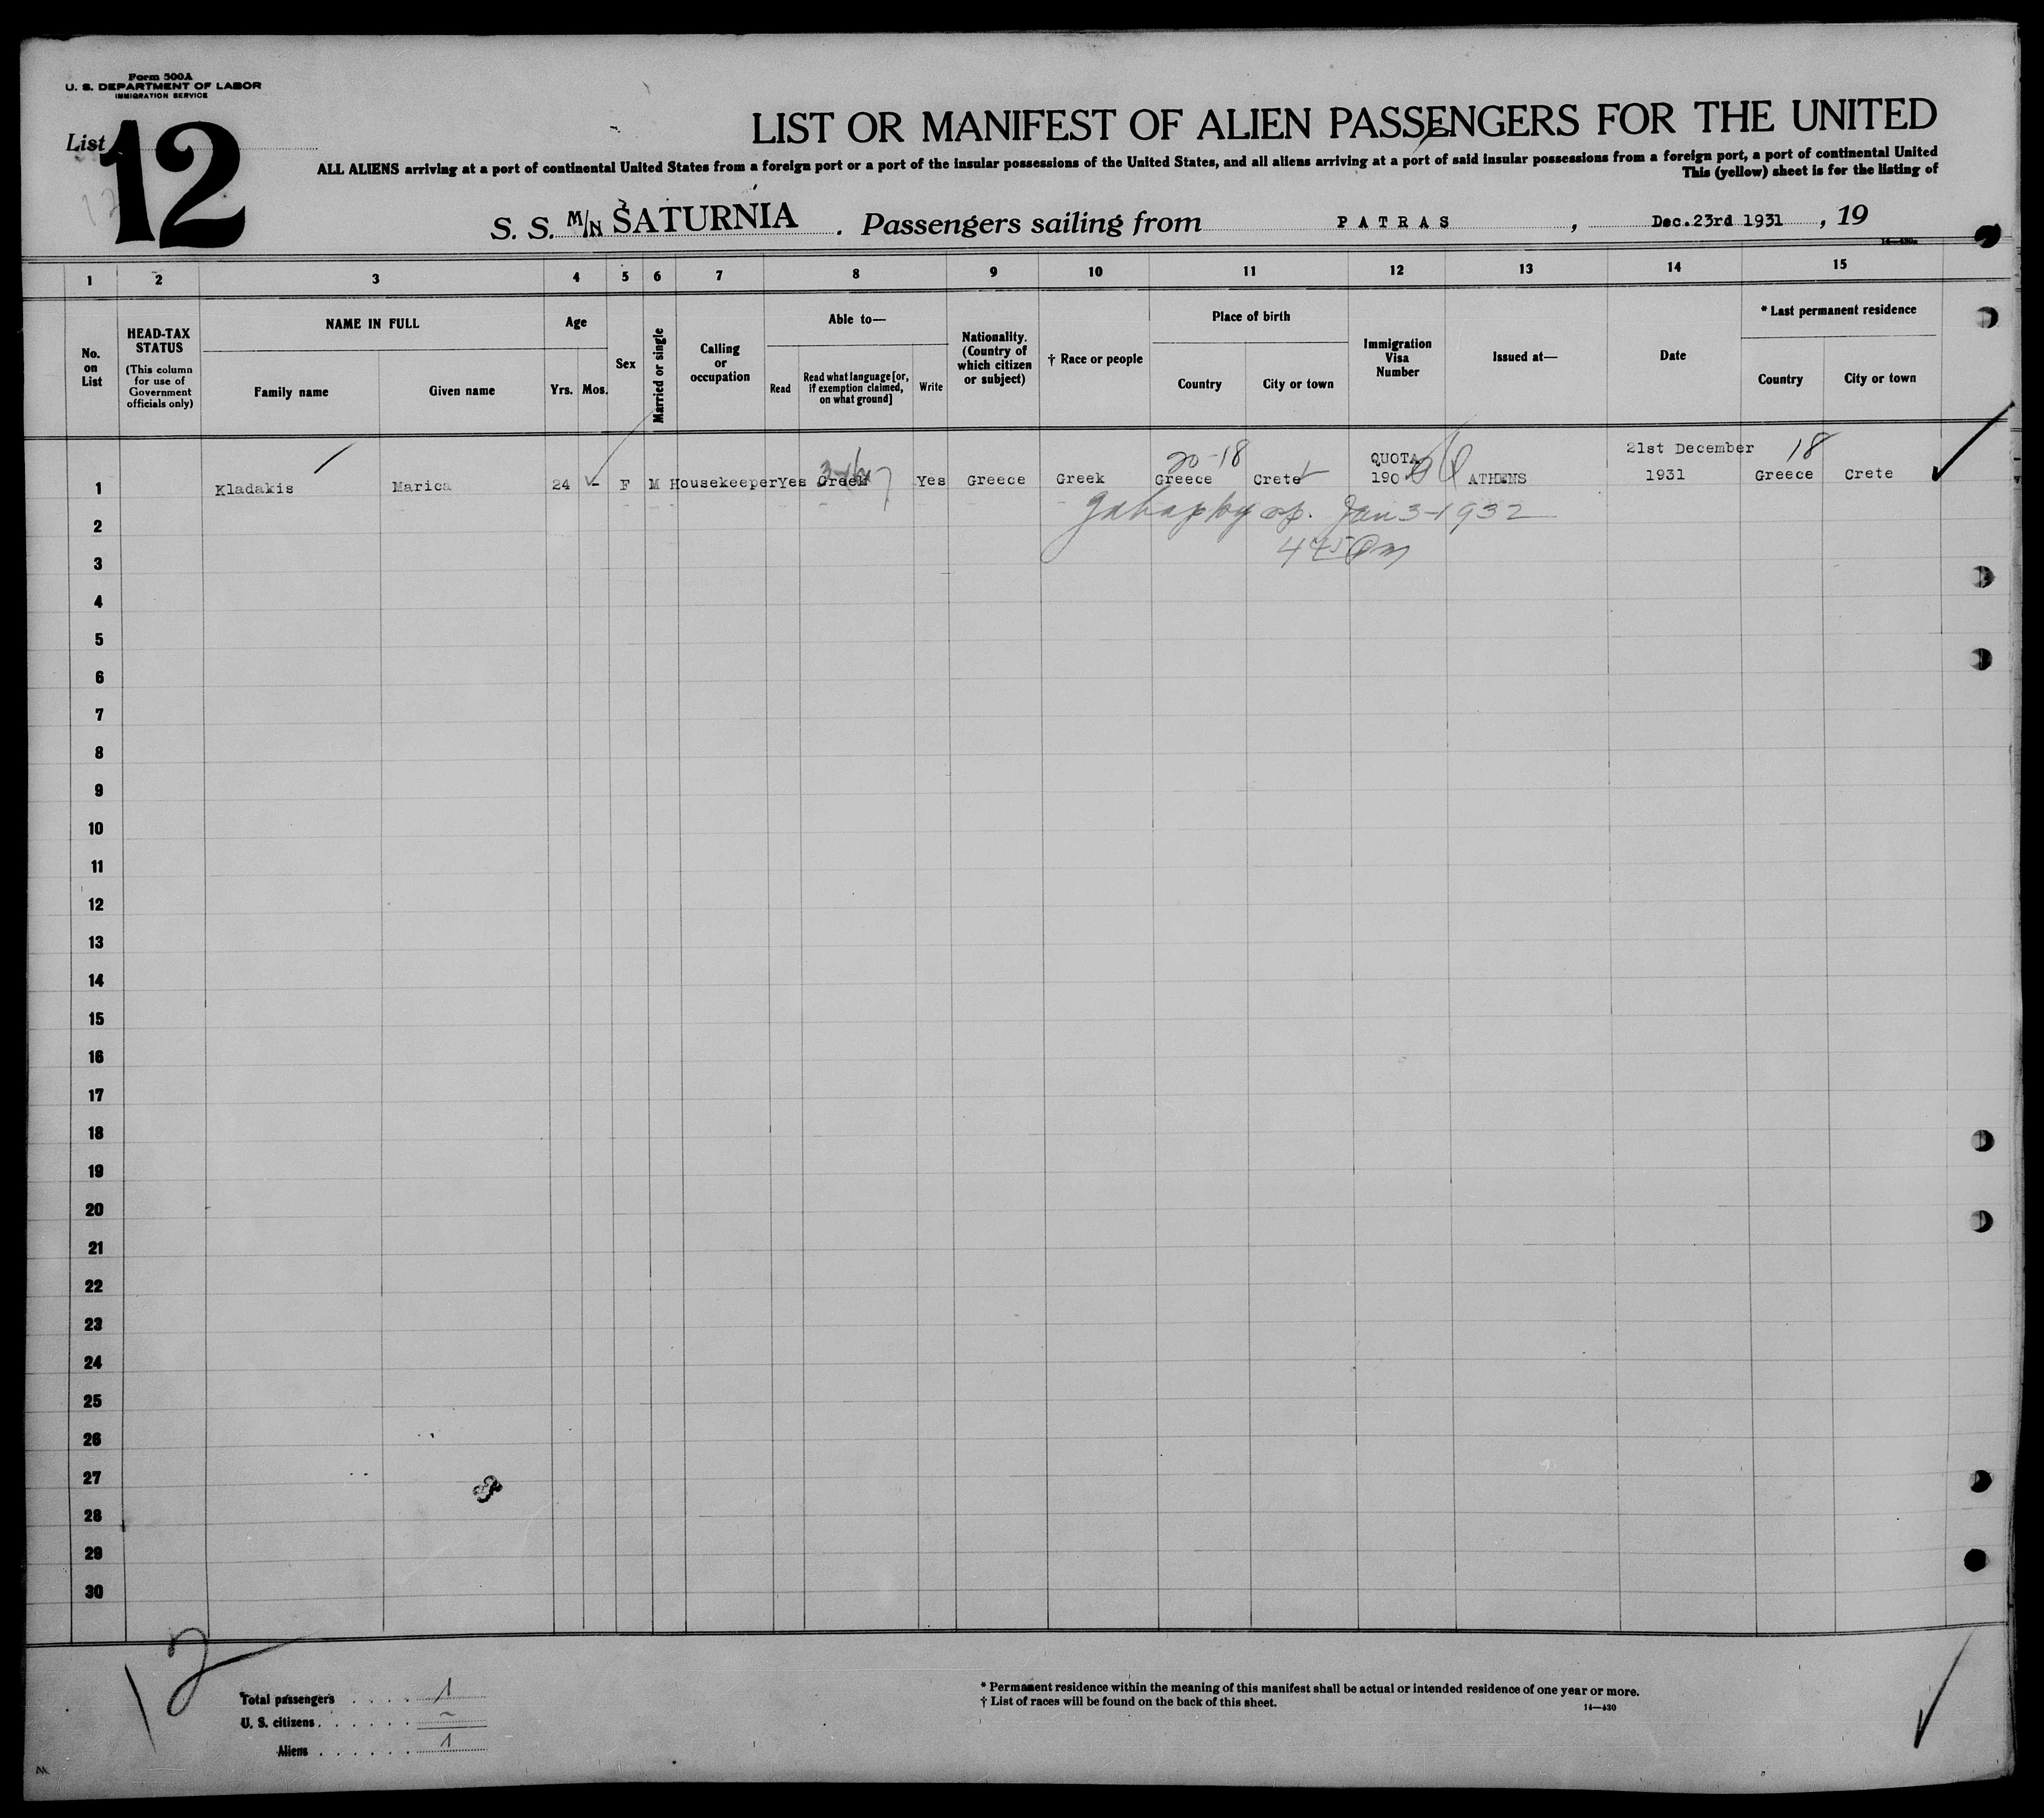 Form 500A
U. S. DEPARTMENT OF LABOR
IMMIGRATION SERVICE
List 12
LIST OR MANIFEST OF ALIEN PASSENGERS FOR THE UNITED
ALL ALIENS arriving at a port of continental United States from a foreign port or a port of the insular possessions of the United States, and all aliens arriving at a port of said insular possessions from a foreign port, a port of continental United
This (yellow) sheet is for the listing of
S. S. M/N SATURNIA . Passengers sailing from PATRAS , Dec.23rd 1931 , 19
1 2 3 4 5 6 7 8 9 10 11 12 13 14 15
No. on List
HEAD-TAX STATUS
(This column for use of Government officials only)
NAME IN FULL
Family name Given name
Age
Yrs. Mos.
Sex
Married or single
Calling or occupation
Able to—
Read
Read what language [or, if exemption claimed, on what ground]
Write
Nationality. (Country of which citizen or subject)
† Race or people
Place of birth
Country City or town
Immigration Visa Number
Issued at—
Date
* Last permanent residence
Country City or town
20-18 QUOTA 21st December 18
1 Kladakis Marica 24 - F M Housekeeper Yes Greek Yes Greece Greek Greece Crete 190 ATHENS 1931 Greece Crete
2 Jan 3-1932
3
4
5
6
7
8
9
10
11
12
13
14
15
16
17
18
19
20
21
22
23
24
25
26
27
28
29
30
12
Total passengers . . . . 1
U. S. citizens . . . . . . ~
Aliens . . . . . . 1
* Permanent residence within the meaning of this manifest shall be actual or intended residence of one year or more.
† List of races will be found on the back of this sheet.
14—430